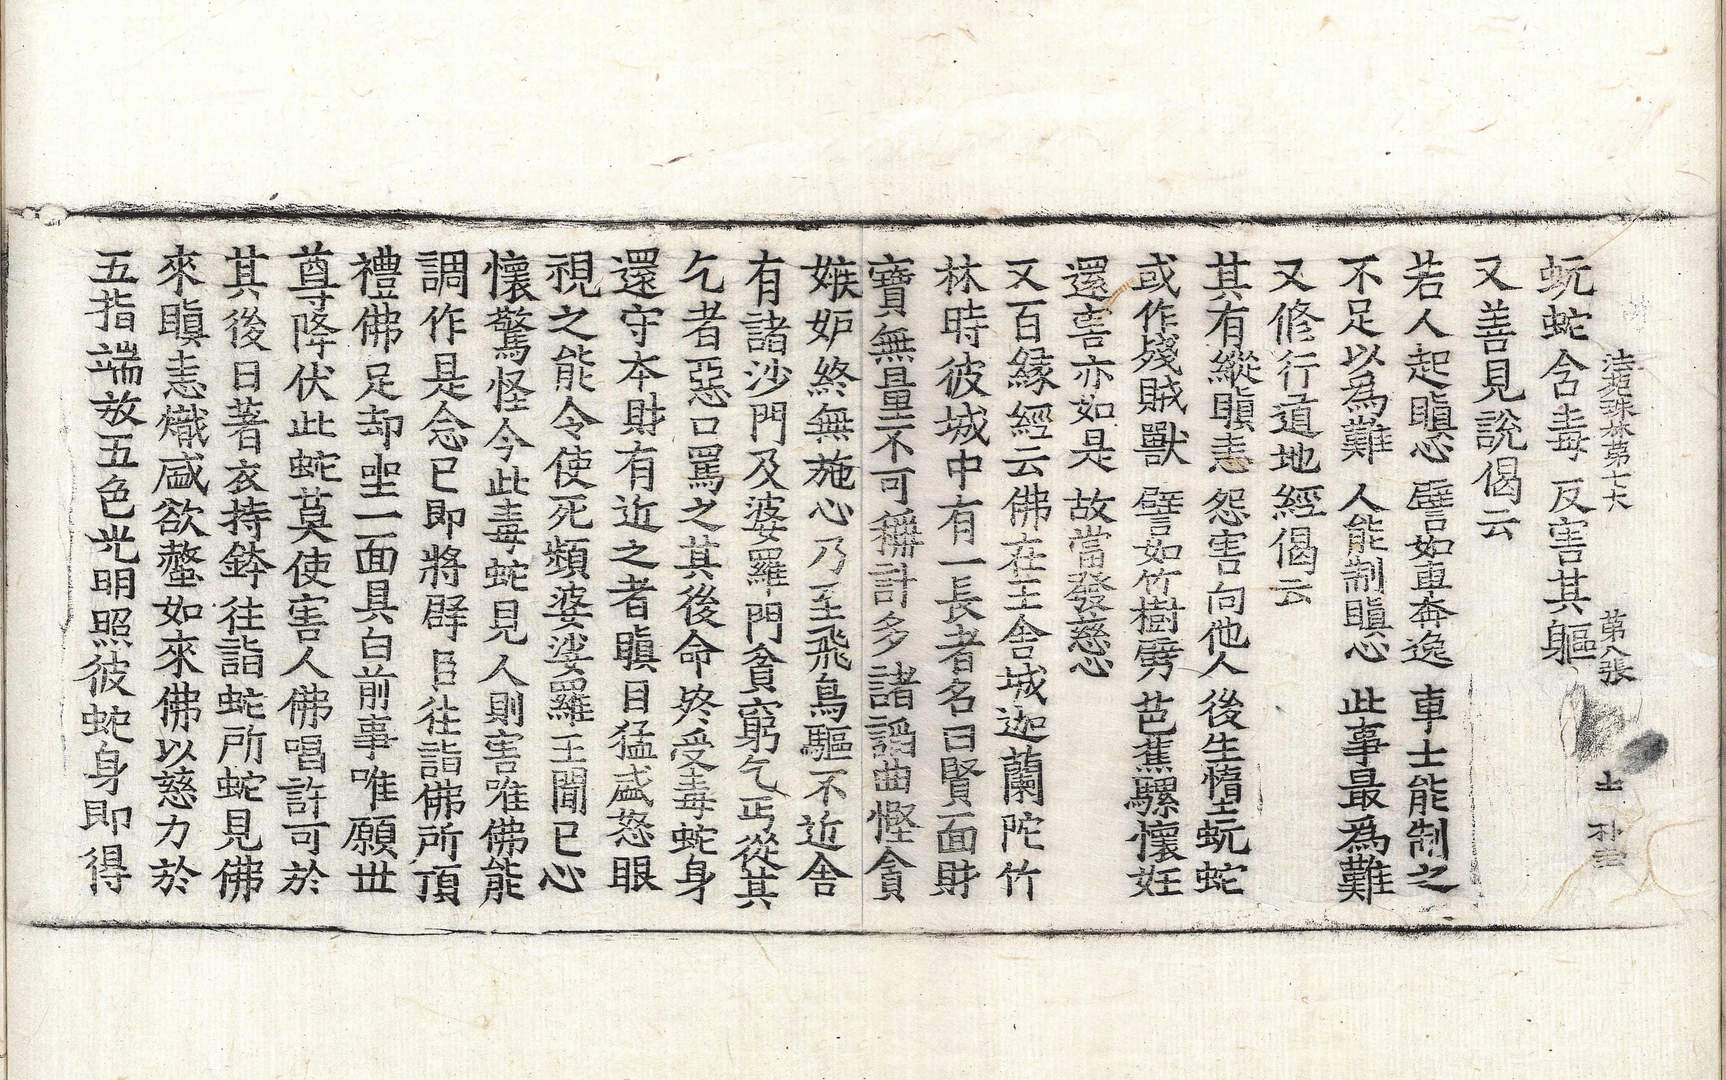 法苑珠林第七十六 第八張 士
蚖蛇含毒 反害其軀
又善見說偈云
若人起瞋心 譬如車奔逸 車士能制之
不足以為難 人能制瞋心 此事最為難
又修行道地經偈云
其有縱瞋恚 怨害向他人 後生墮蚖蛇
或作殘賊獸 譬如竹樹劈 芭蕉騾懷妊
還害亦如是 故當發慈心
又百緣經云佛在王舍城迦蘭陀竹
林時彼城中有一長者名曰賢面財
寶無量不可稱計多諸諂曲慳貪
嫉妒終無施心乃至飛鳥驅不近舍
有諸沙門及婆羅門貧窮乞丐從其
乞者惡口罵之其後命終受毒蛇身
還守本財有近之者瞋目猛盛怒眼
視之能令使死頻婆娑羅王聞已心
懷驚怪今此毒蛇見人則害唯佛能
調作是念已即將群臣往詣佛所頂
禮佛足却坐一面具白前事唯願世
尊降伏此蛇莫使害人佛唱許可於
其後日著衣持鉢往詣蛇所蛇見佛
來瞋恚熾盛欲螫如來佛以慈力於
五指端放五色光明照彼蛇身即得